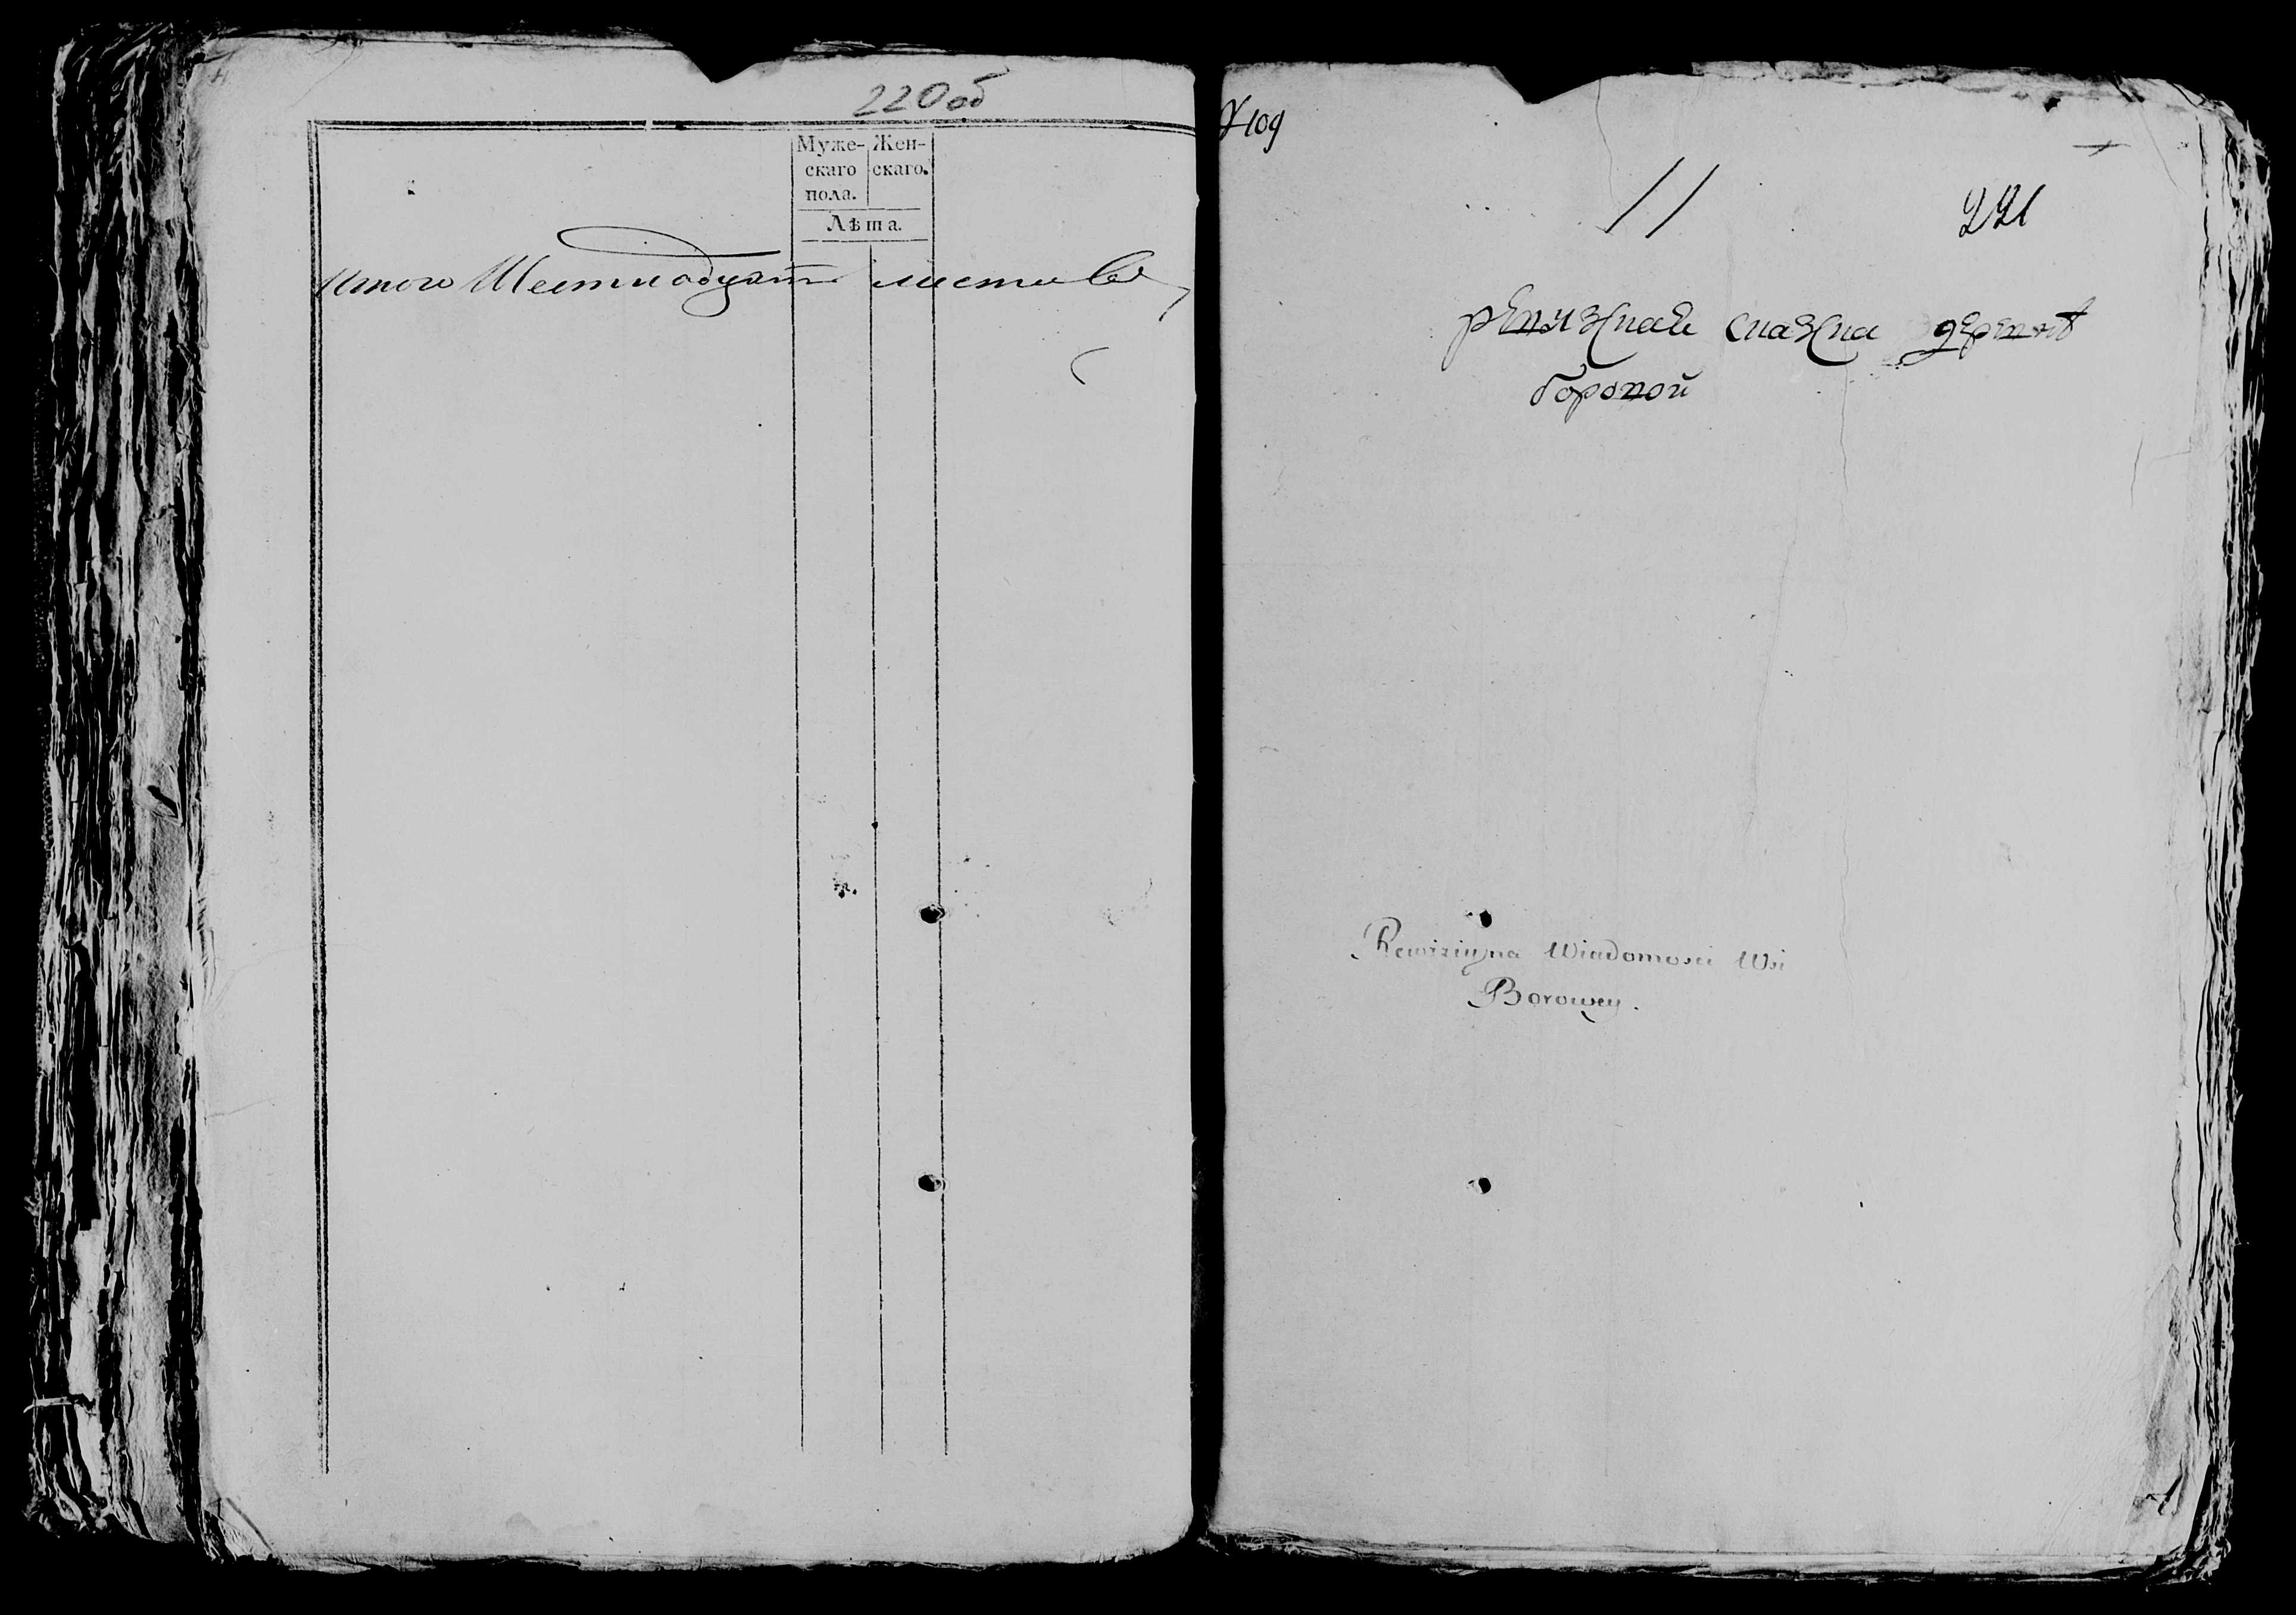 220 об
Муже- Жен-
скаго скаго.
пола.
Лѣта.
Итого Шестнадцать листовъ
109
11
221
ревизская сказка деревнѣ
боровой
Rewiziyna Wiadomosci Wsi
Borowey.